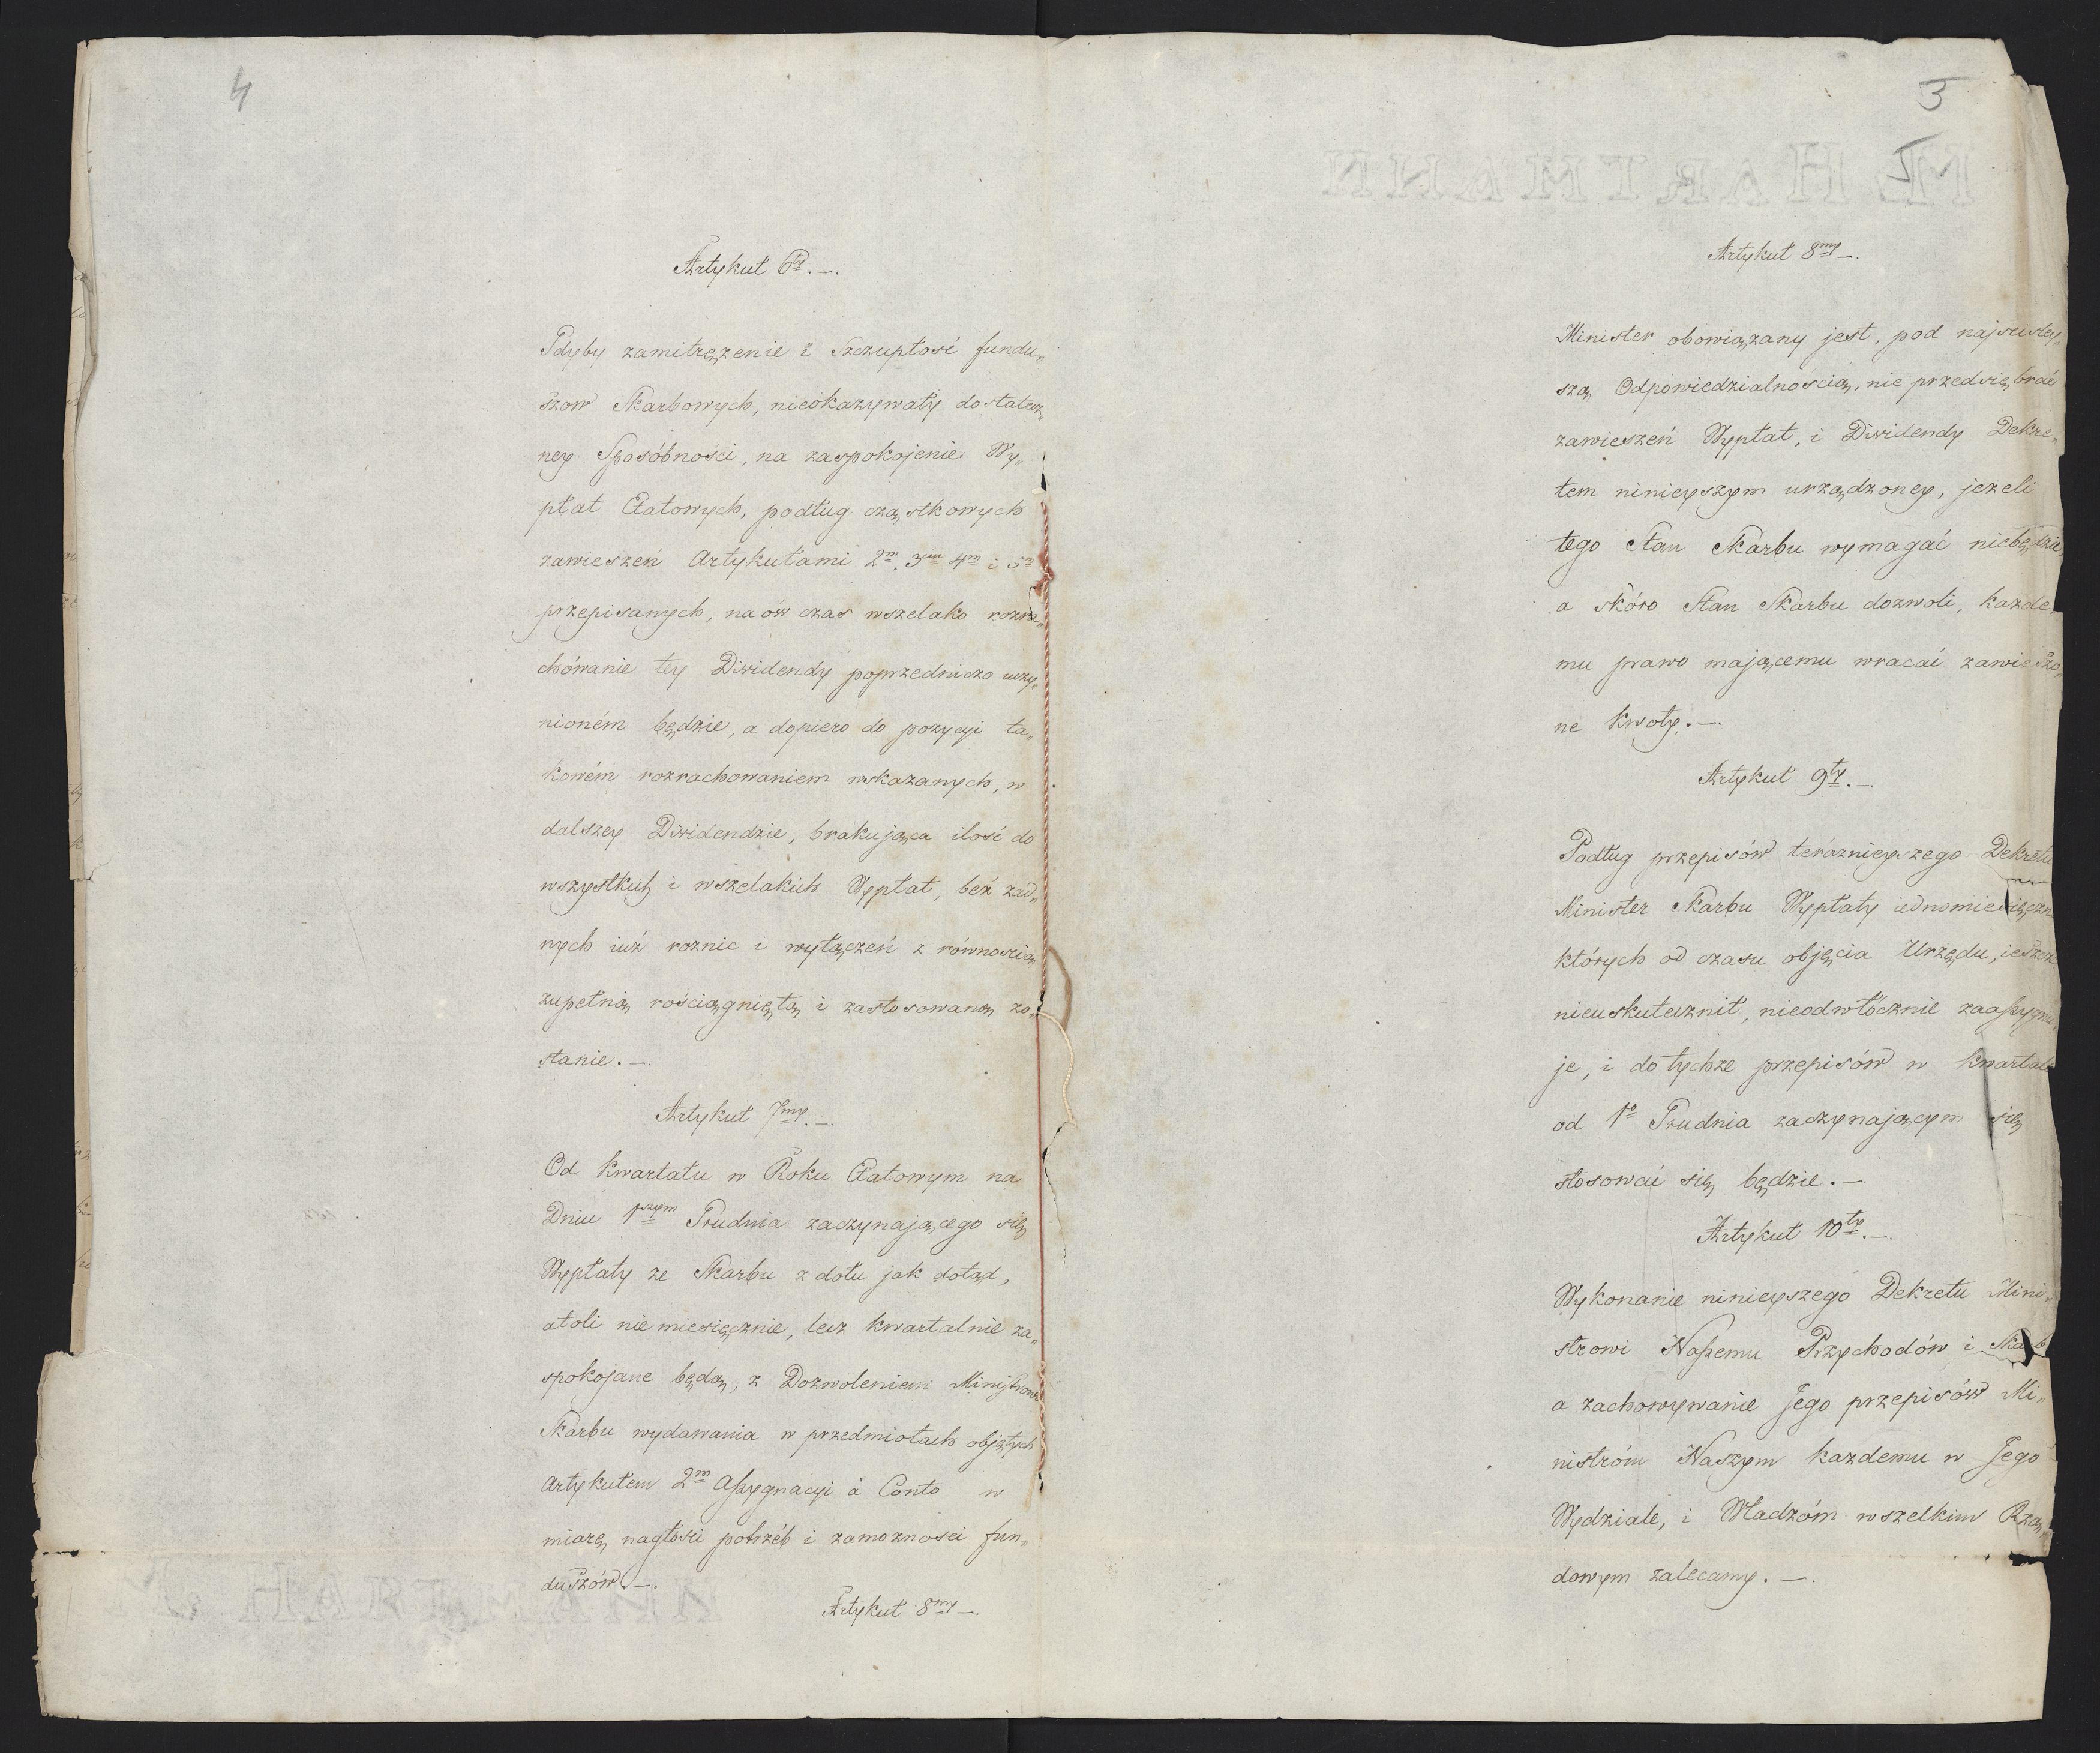 4
Artykuł 6ty. —.
Gdyby zamitrężenie i Szczupłość fundu„
szow Skarbowych, nieokazywały dostatecz„
ney Sposóbności, na zaspokojenie Wy„
płat Etatowych, podług cząstkowych
zawieszeń Artykułami 2m, 3cim 4m i 5m
przepisanych, na ów czas wszelako rozra„
chówanie tey Dividendy poprzedniczo uczy„
nioném będzie, a dopiero do pozycyi ta„
kowém rozrachowaniem wskazanych, w
dalszey Dividendzie, brakująca ilość do
wszystkich i wszelakich Wypłat, bez żad„
nych iuż roznic i wyłączeń z równością
zupełną rościągniętą i zastosowaną zo„
stanie. —.
Artykuł 7my. —.
Od Kwartału w Roku Etatowym na
Dniu 1szym Grudnia zaczynającego się
Wypłaty ze Skarbu z dołu jak dotąd,
atoli nie miesięcznie, lecz kwartalnie za„
spokojane będą, z Dozwoleniem Ministrowi
Skarbu wydawania w przedmiotach objętych
Artykułem 2m Assygnacyi à Conto w
miarę nagłości potrzéb i zamoznosci fun„
duszów. —.
Artykuł 8my —.
3
M HARTMANN
Artykuł 8my —.
Minister obowiązany jest, pod najscisley„
szą Odpowiedzialnością, nie przedsiębrać
zawieszeń Wypłat, i Dividendy Dekre„
tem ninieyszym urządzoney, jezeli
tego Stan Skarbu wymagać niebędzie,
a skóro Stan Skarbu dozwoli, kazde„
mu prawo mającemu wracać zawieszo„
ne kwoty. —.
Artykuł 9ty. —.
Podług przepisów teraznieyszego Dekretu
Minister Skarbu Wypłaty iednomiesięczne
których od czasu objęcia Urzędu, ieszcze
nieuskutecznił, nieodwłócznie zaassygnu„
je, i do tychze przepisów w Kwartale
od 1o Grudnia zaczynającym się
stosować się będzie. —
Artykuł 10ty. —.
Wykonanie ninieyszego Dekretu Mini„
strowi Naszemu Przychodów i Skarbu
a zachowywanie Jego przepisów Mi„
nistróm Naszym kazdemu w Jego
Wydziale, i Władzóm wszelkim Rzą„
dowym zalecamy. —.